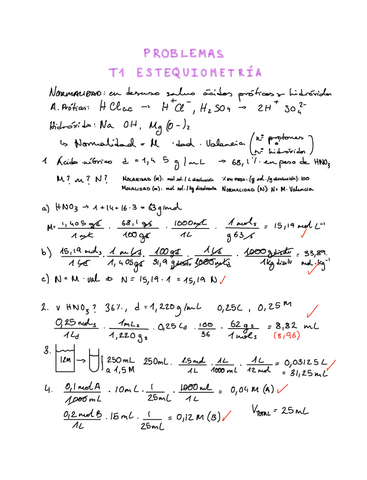 PROBLEMAS
T1 ESTEQUIOMETRÍA
NORMALIDAD: en desuso salvo ácidos próticos y hidróxidos
A. Próticos: HCl ac → H⁺Cl⁻, H₂SO₄ → 2H⁺ SO₄²⁻
Hidróxido: Na OH, Mg(O-)₂
↳ Normalidad = M · dad · Valencia (nº protones) (nº hidróxidos)
1. Ácido nítrico d = 1,4 5 g/mL → 68,1% en peso de HNO₃
M? m? N? MOLARIDAD (M): mol sol./L disolución %EN PESO: (g sol./g disolución)·100
MOLALIDAD (m): mol sol./kg disolvente NORMALIDAD (N): N = M · Valencia
a) HNO₃ → 1+14+16·3 = 63 g/mol
M = 1,405 gd/1 mLd · 68,1 gs/100 gd · 1000 mL/1 L · 1 mol s/g 63 s = 15,19 mol L⁻¹
b) 15,19 mol s/1 Ld · 1 mLd/1,405 gd · 100 gd/31,9 gdisolv · 1 Ld/1000 mL · 1000 gdisolv/1 kg disolv = 33,89 mol·kg⁻¹
c) N = M · val ⇒ N = 15,19 · 1 = 15,19 N
2. v HNO₃? 36%, d = 1,220 g/mL 0,25 L, 0,25 M
0,25 mol s/1 Ld · 1 mL s/1,220 g s · 0,25 L d · 100/36 · 62 g s/1 mol s = 8,82 mL
(8,96)
3. 12M → 250 mL a 1,5 M 250 mL · 1,5 mol/1 L · 1 L/1000 mL · 1 L/12 mol = 0,03125 L
= 31,25 mL
4. 0,1 mol A/1000 mL · 10 mL · 1/25 mL · 1000 mL/1 L = 0,04 M (A)
0,2 mol B/1 L · 15 mL · 1/25 mL = 0,12 M (B) V TOTAL = 25 mL